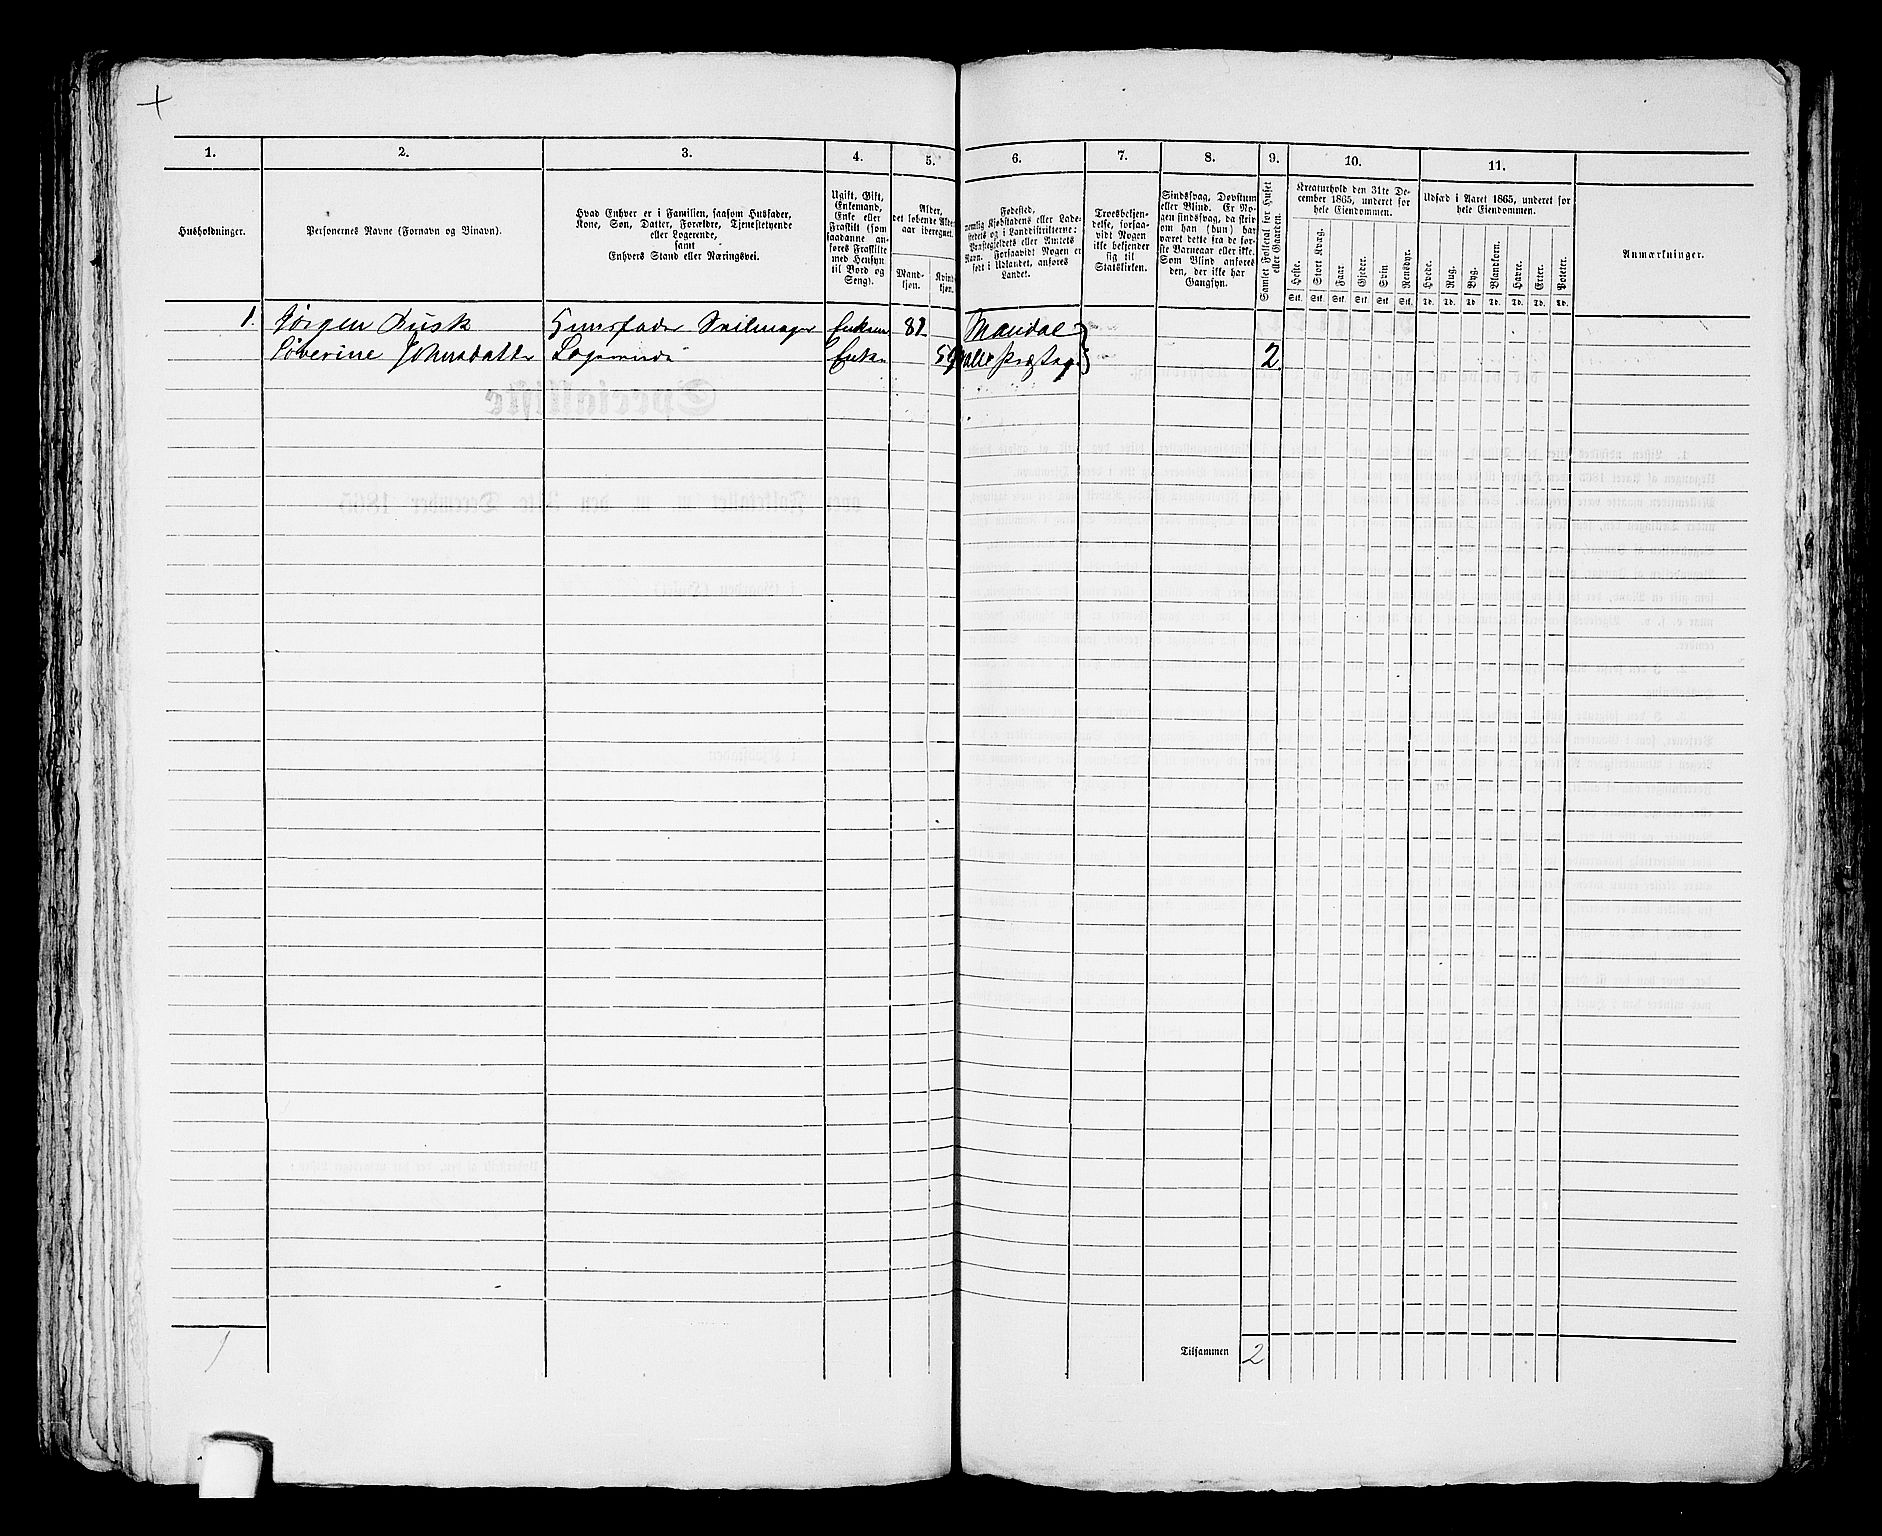 1. 2. 3. 4. 5. 6. 7. 8. 9. 10. 11.
Husholdninger.
Personernes Navne (Fornavn og Tilnavn).
Hvad Enhver er i Familien, saasom Husfader,
Kone, Søn, Datter, Forældre, Tjenestetyende
eller Logerende,
samt
Enhvers Stand eller Næringsvei.
Ugift, Gift,
Enkemand,
Enke eller
Fraskilt (som
saadanne an-
føres Fraskilte
med Hensyn
til Bord og
Seng).
Alder,
det løbende Alders-
aar iberegnet.
Mand-
kjøn.
Kvinde-
kjøn.
Fødested,
nemlig Kjøbstadens eller Lade-
stedets og i Landdistrikterne:
Præstegjeldets eller Amtets
Navn. Forsaavidt Nogen er
født i Udlandet, anføres
Landet.
Troesbekjen-
delse, forsaa-
vidt Nogen
ikke bekjender
sig til
Statskirken.
Sindssvag, Døvstum
eller Blind. Er No-
gen sindssvag, da skriv
om han (hun) har
været dette fra de før-
ste Barneaar eller ikke.
Som Blind anføres
den, der ikke har
Gangsyn.
Samlet Folketal for Huset
eller Gaarden.
Kreaturhold den 31te De-
cember 1865, underet for
hele Eiendommen.
Heste. Stort Kvæg. Faar. Gjeder. Svin Rensdyr.
Stk. Stk. Stk. Stk. Stk. Stk.
Udsæd i Aaret 1865, underet for
hele Eiendommen.
Hvede. Rug. Byg. Blandkorn. Havre. Erter. Poteter.
Td. Td. Td. Td. Td. Td. Td.
Anmærkninger.
1. Jørgen Husfader Seilmager Enkem 82 Mandal
Søverine Johnsdatter Logerende Enke 59 2
1
Tilsammen 2